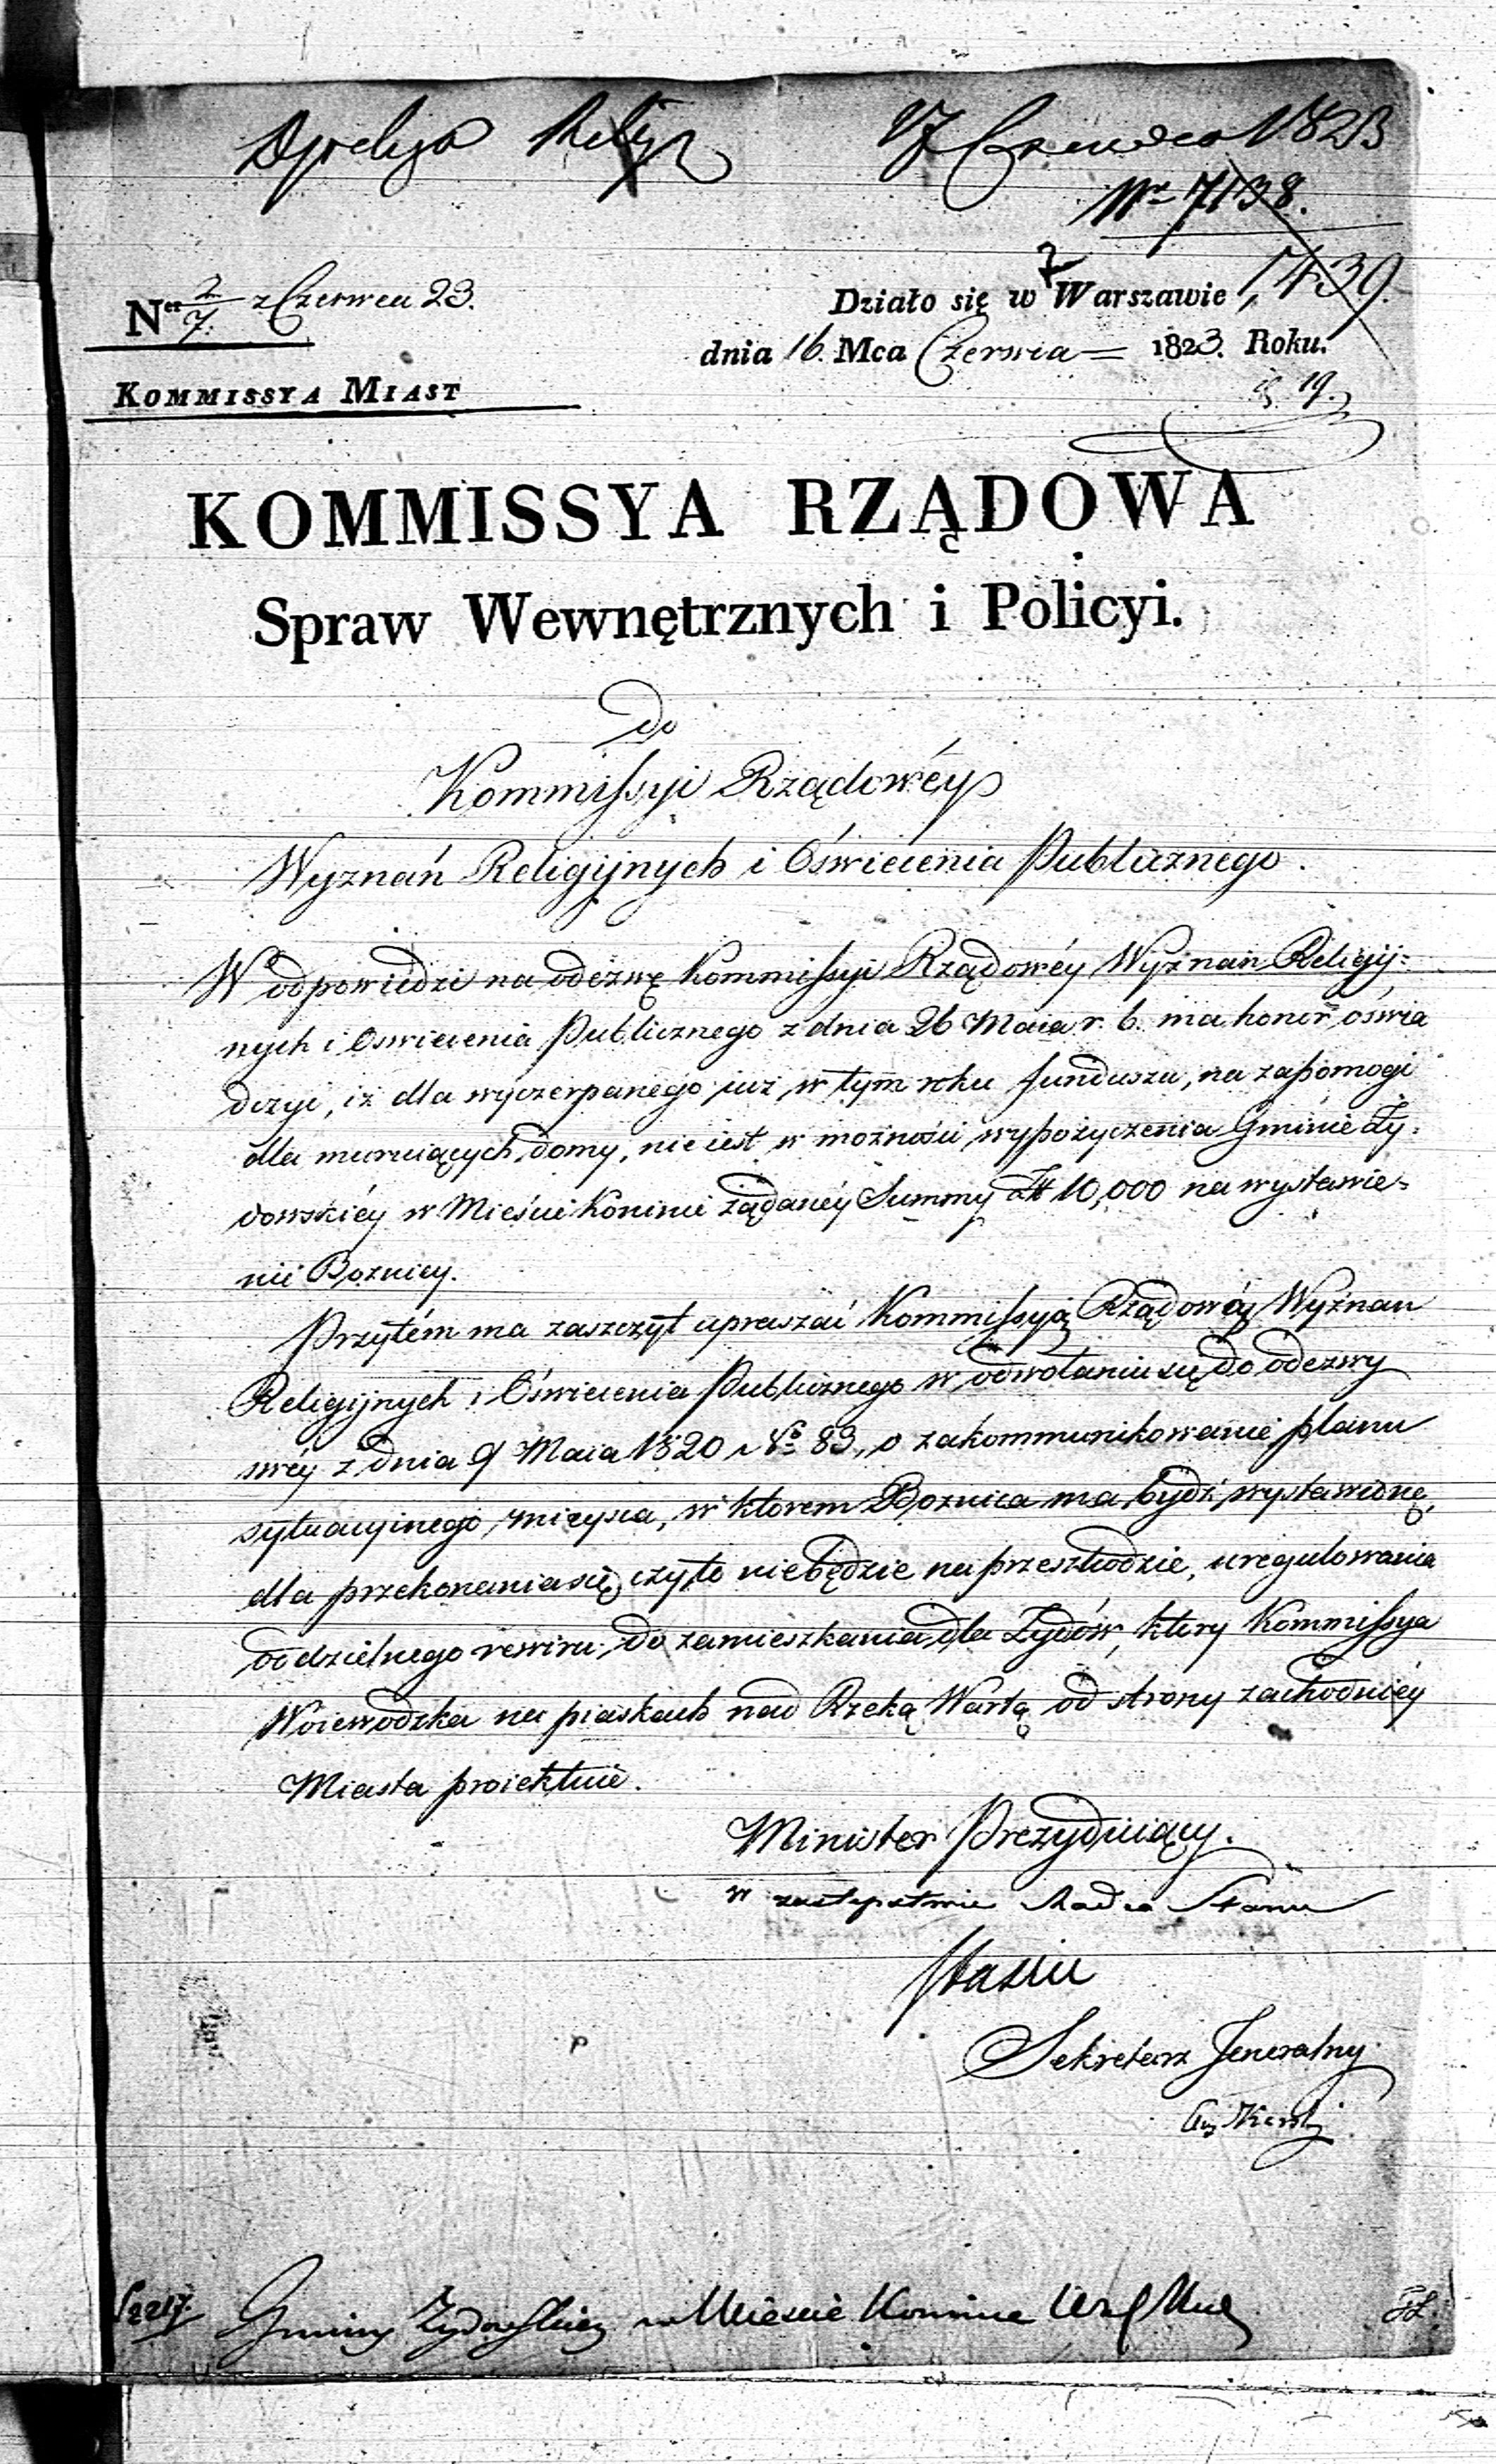 17 Czerwca 1823
Nr 7138.
Ner 2/7 z Czerwca 23.
Działo się w Warszawie 1,439.
dnia 16. Mca Czerwca 1823. Roku.
KOMMISSYA MIAST
19.
KOMMISSYA RZĄDOWA
Spraw Wewnętrznych i Policyi.
do
Kommissyi Rządowéy
Wyznań Religijnych i Oświécenia Publicznego.
W odpowiedzi na odezwę Kommissyi Rządowéy Wyznań Religij-
nych i Oswiecenia Publicznego z dnia 26 Maia r. b. ma honor oświa
dczyć, iż dla wyczerpanego iuż w tym roku funduszu, na zapomogi
dla muruiących domy, nie iest w możności wypożyczenia Gminie Ży-
dowskiéy w Mieście Koninie żądanéy Summy Zł 10,000 na wystawie-
nie Boznicy.
Przytém ma zaszczyt upraszać Kommissyią Rządową Wyznan
Religijnych i Oświecenia Publicznego w odwołaniu się do odezwy
swéy z dnia 9 Maia 1820 No 83, o zakommunikowanie planu
sytuacyinego, mieysca, w ktorem Boznica ma bydź wystawioną,
dla przekonania się czyto niebędzie na przeszkodzie, uregulowania
oddzielnego rewiru do zamieszkania dla Żydów, ktory Kommissya
Woiewodzka na piaskach nad Rzeką Wartą od strony zachodniéy
Miasta proiektuie.
Minister Prezyduiący.
w zastępstwie Radca Stanu
Staszic
Sekretarz Jeneralny
2217
Gminy Żydowskiey w Miescie Koninie